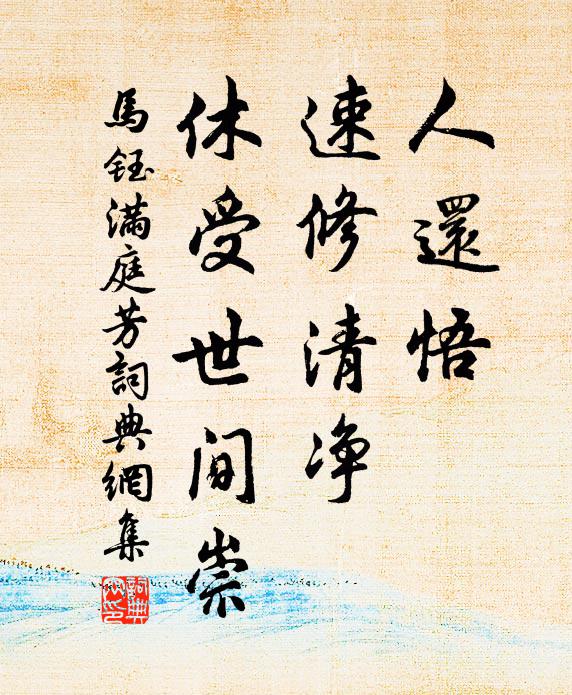 人還悟
速修清净
休受世间崇
馬鈺滿庭芳詞典網集